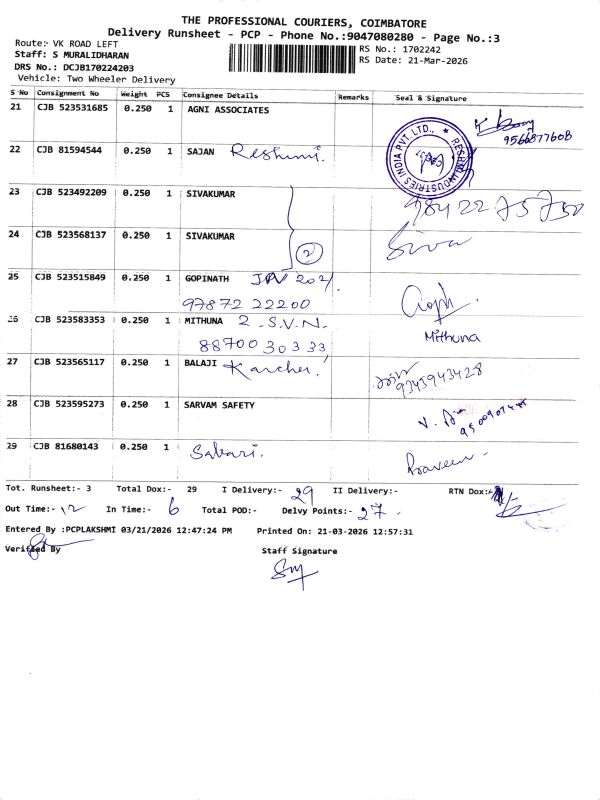 THE PROFESSIONAL COURIERS, COIMBATORE
Delivery Runsheet - PCP - Phone No.:9047080280 - Page No.:3
Route:- VK ROAD LEFT
RS No.: 1702242
Staff: S MURALIDHARAN
RS Date: 21-Mar-2026
DRS No.: DCJB170224203
Vehicle: Two Wheeler Delivery
S No Consignment No Weight PCS Consignee Details Remarks Seal & Signature
21 CJB 523531685 0.250 1 AGNI ASSOCIATES
9566877608
RESHMI INDUSTRIES INDIA PVT. LTD.,
22 CJB 81594544 0.250 1 SAJAN Reshmi.
23 CJB 523492209 0.250 1 SIVAKUMAR
98422 75750
24 CJB 523568137 0.250 1 SIVAKUMAR Siva
2
25 CJB 523515849 0.250 1 GOPINATH
97872 22200 Goph.
26 CJB 523583353 0.250 1 MITHUNA 2. S.V.N. Mithuna
88700 30333
27 CJB 523565117 0.250 1 BALAJI Karcher
9345943428
28 CJB 523595273 0.250 1 SARVAM SAFETY
29 CJB 81680143 0.250 1 Sabari. Praveen
Tot. Runsheet:- 3 Total Dox:- 29 I Delivery:- 29 II Delivery:- RTN Dox:-
Out Time:- 12 In Time:- 6 Total POD:- Delvy Points:- 27.
Entered By :PCPLAKSHMI 03/21/2026 12:47:24 PM Printed On: 21-03-2026 12:57:31
Verified By Staff Signature